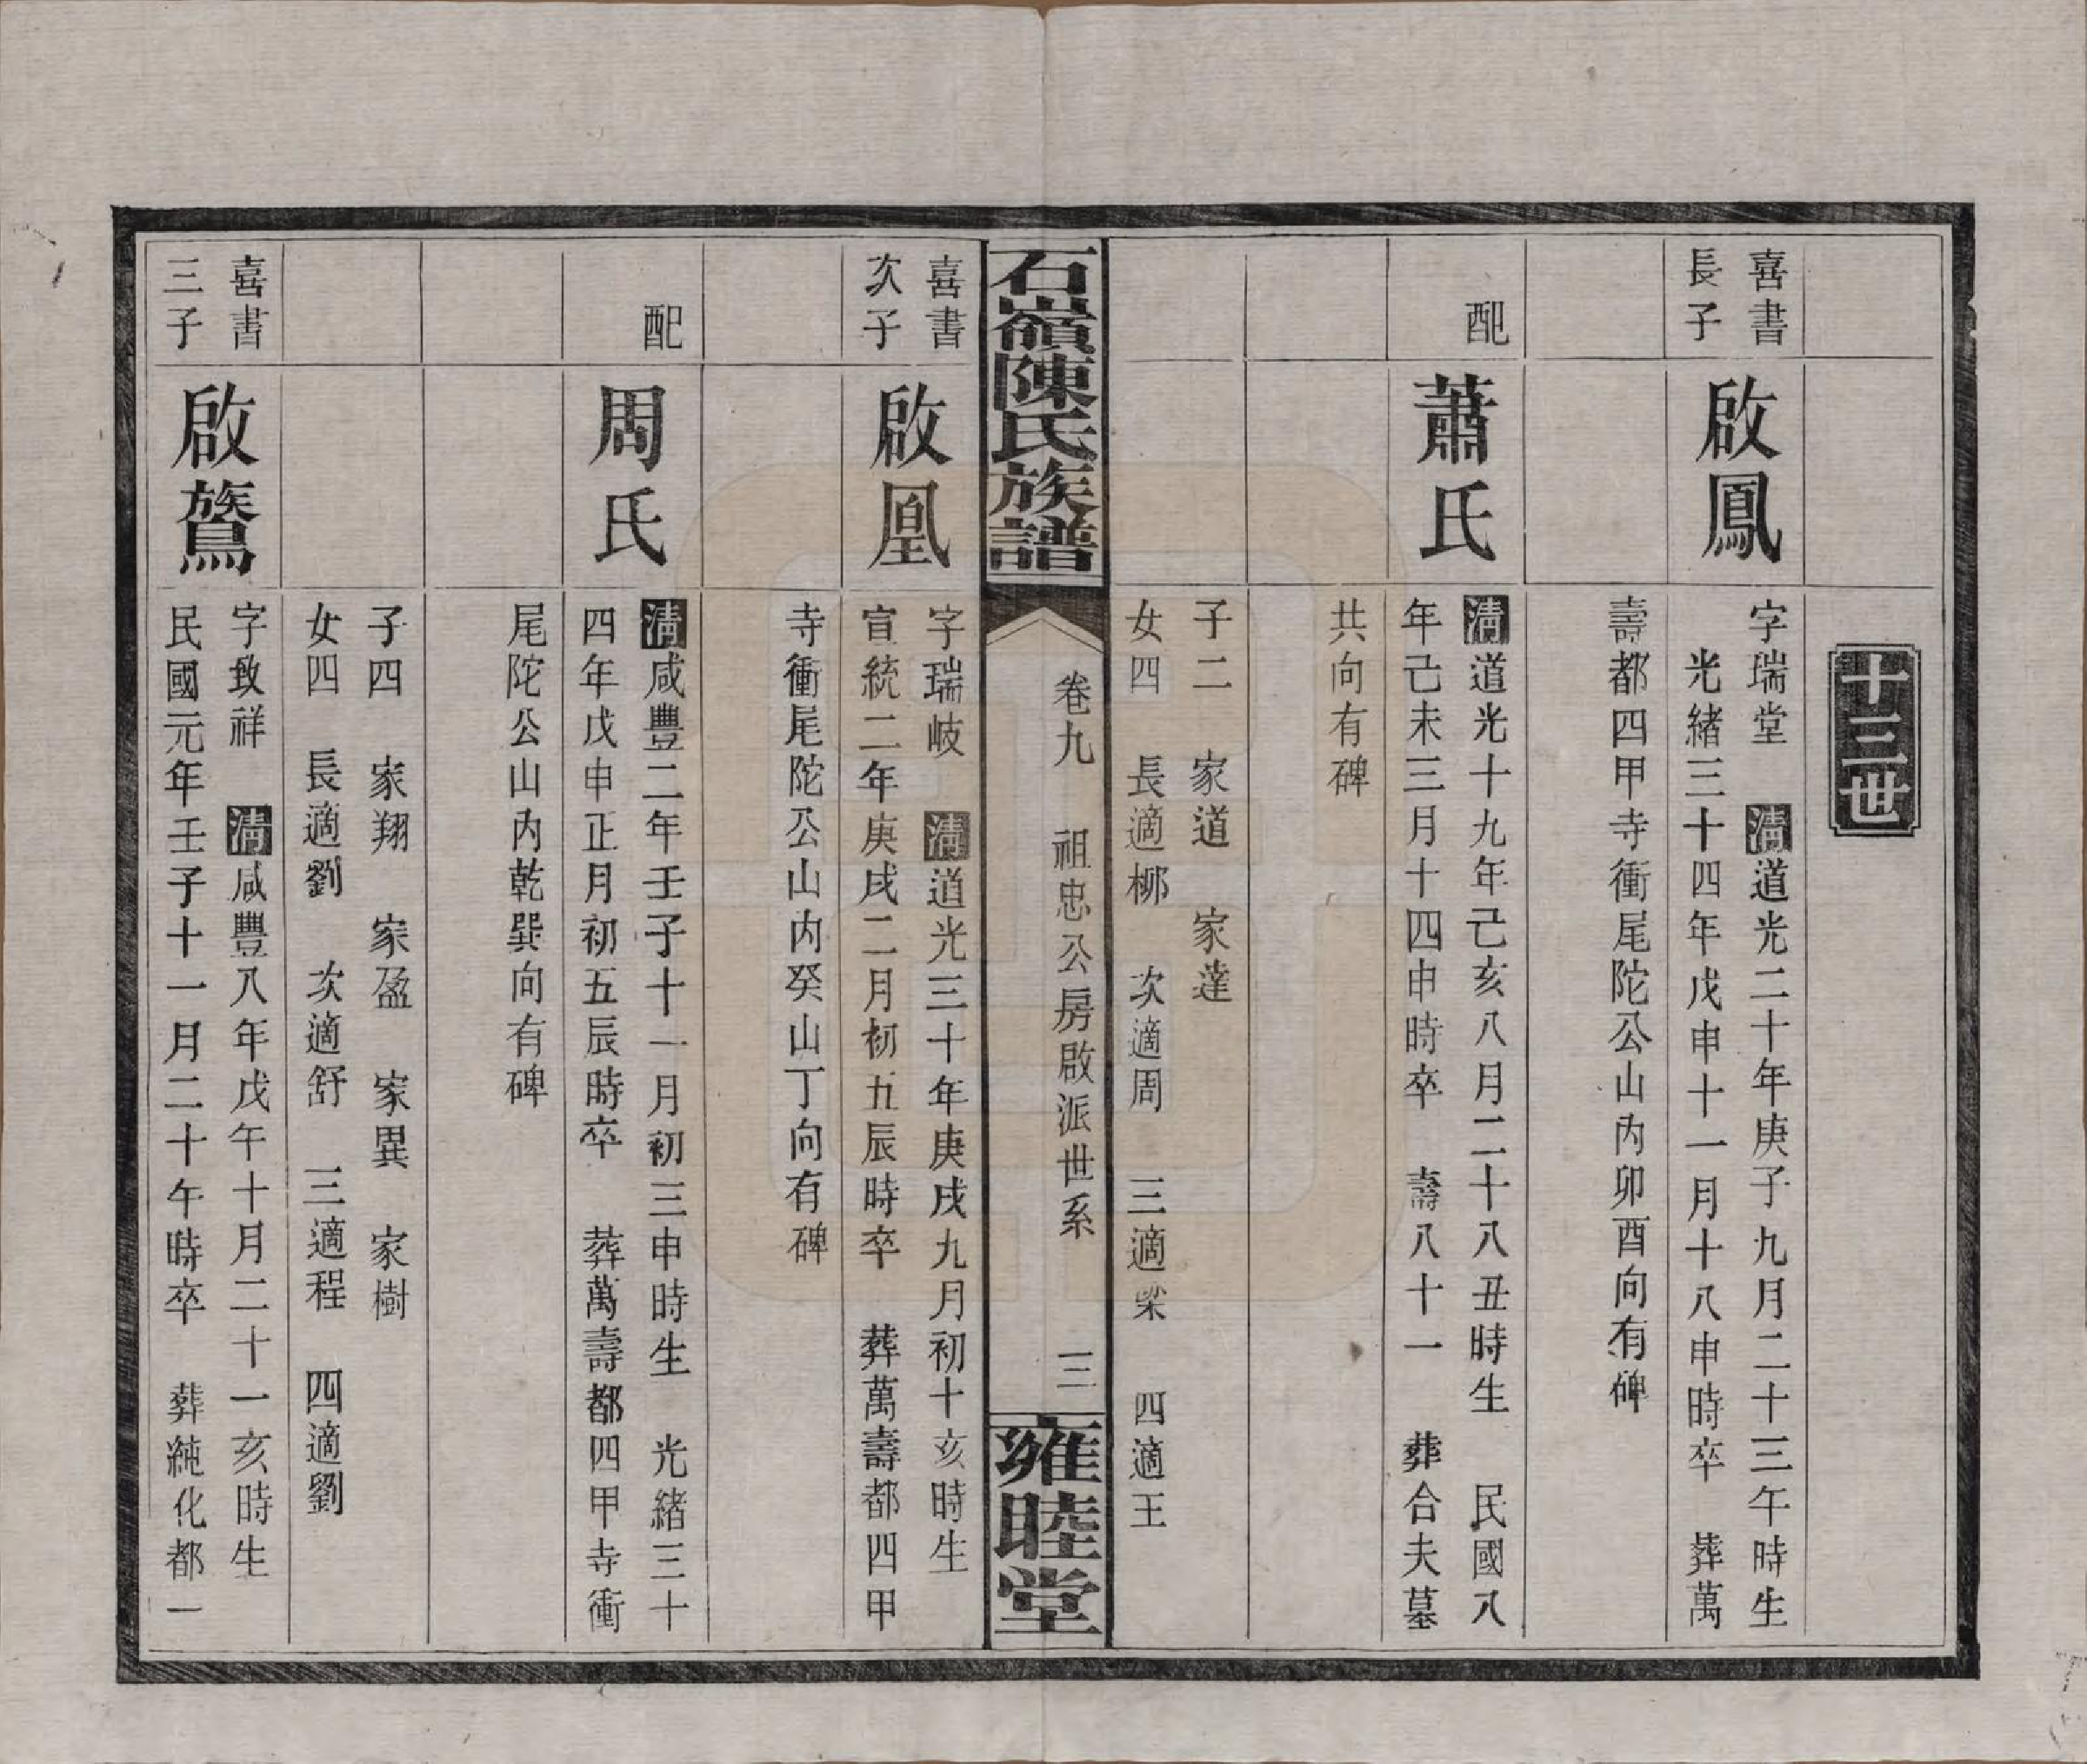 十三世
喜書
長子
啟鳳
字瑞堂 清道光二十年庚子九月二十三午時生
光緒三十四年戊申十一月十八申時卒 葬萬
壽都四甲寺衝尾陀公山內卯酉向有碑
配
蕭氏
清道光十九年己亥八月二十八丑時生 民國八
年己未三月十四申時卒 壽八十一 葬合夫墓
共向有碑
子二 家道 家達
女四 長適柳 次適周 三適梁 四適王
石嶺陳氏族譜
卷九 祖忠公房啟派世系 三
雍睦堂
喜書
次子
啟凰
字瑞岐 清道光三十年庚戌九月初十亥時生
宣統二年庚戌二月初五辰時卒 葬萬壽都四甲
寺衝尾陀公山內癸山丁向有碑
配
周氏
清咸豐二年壬子十一月初三申時生 光緒三十
四年戊申正月初五辰時卒 葬萬壽都四甲寺衝
尾陀公山內乾巽向有碑
子四 家翔 家盈 家異 家樹
女四 長適劉 次適舒 三適程 四適劉
喜書
三子
啟鷟
字致祥 清咸豐八年戊午十月二十一亥時生
民國元年壬子十一月二十午時卒 葬純化都一